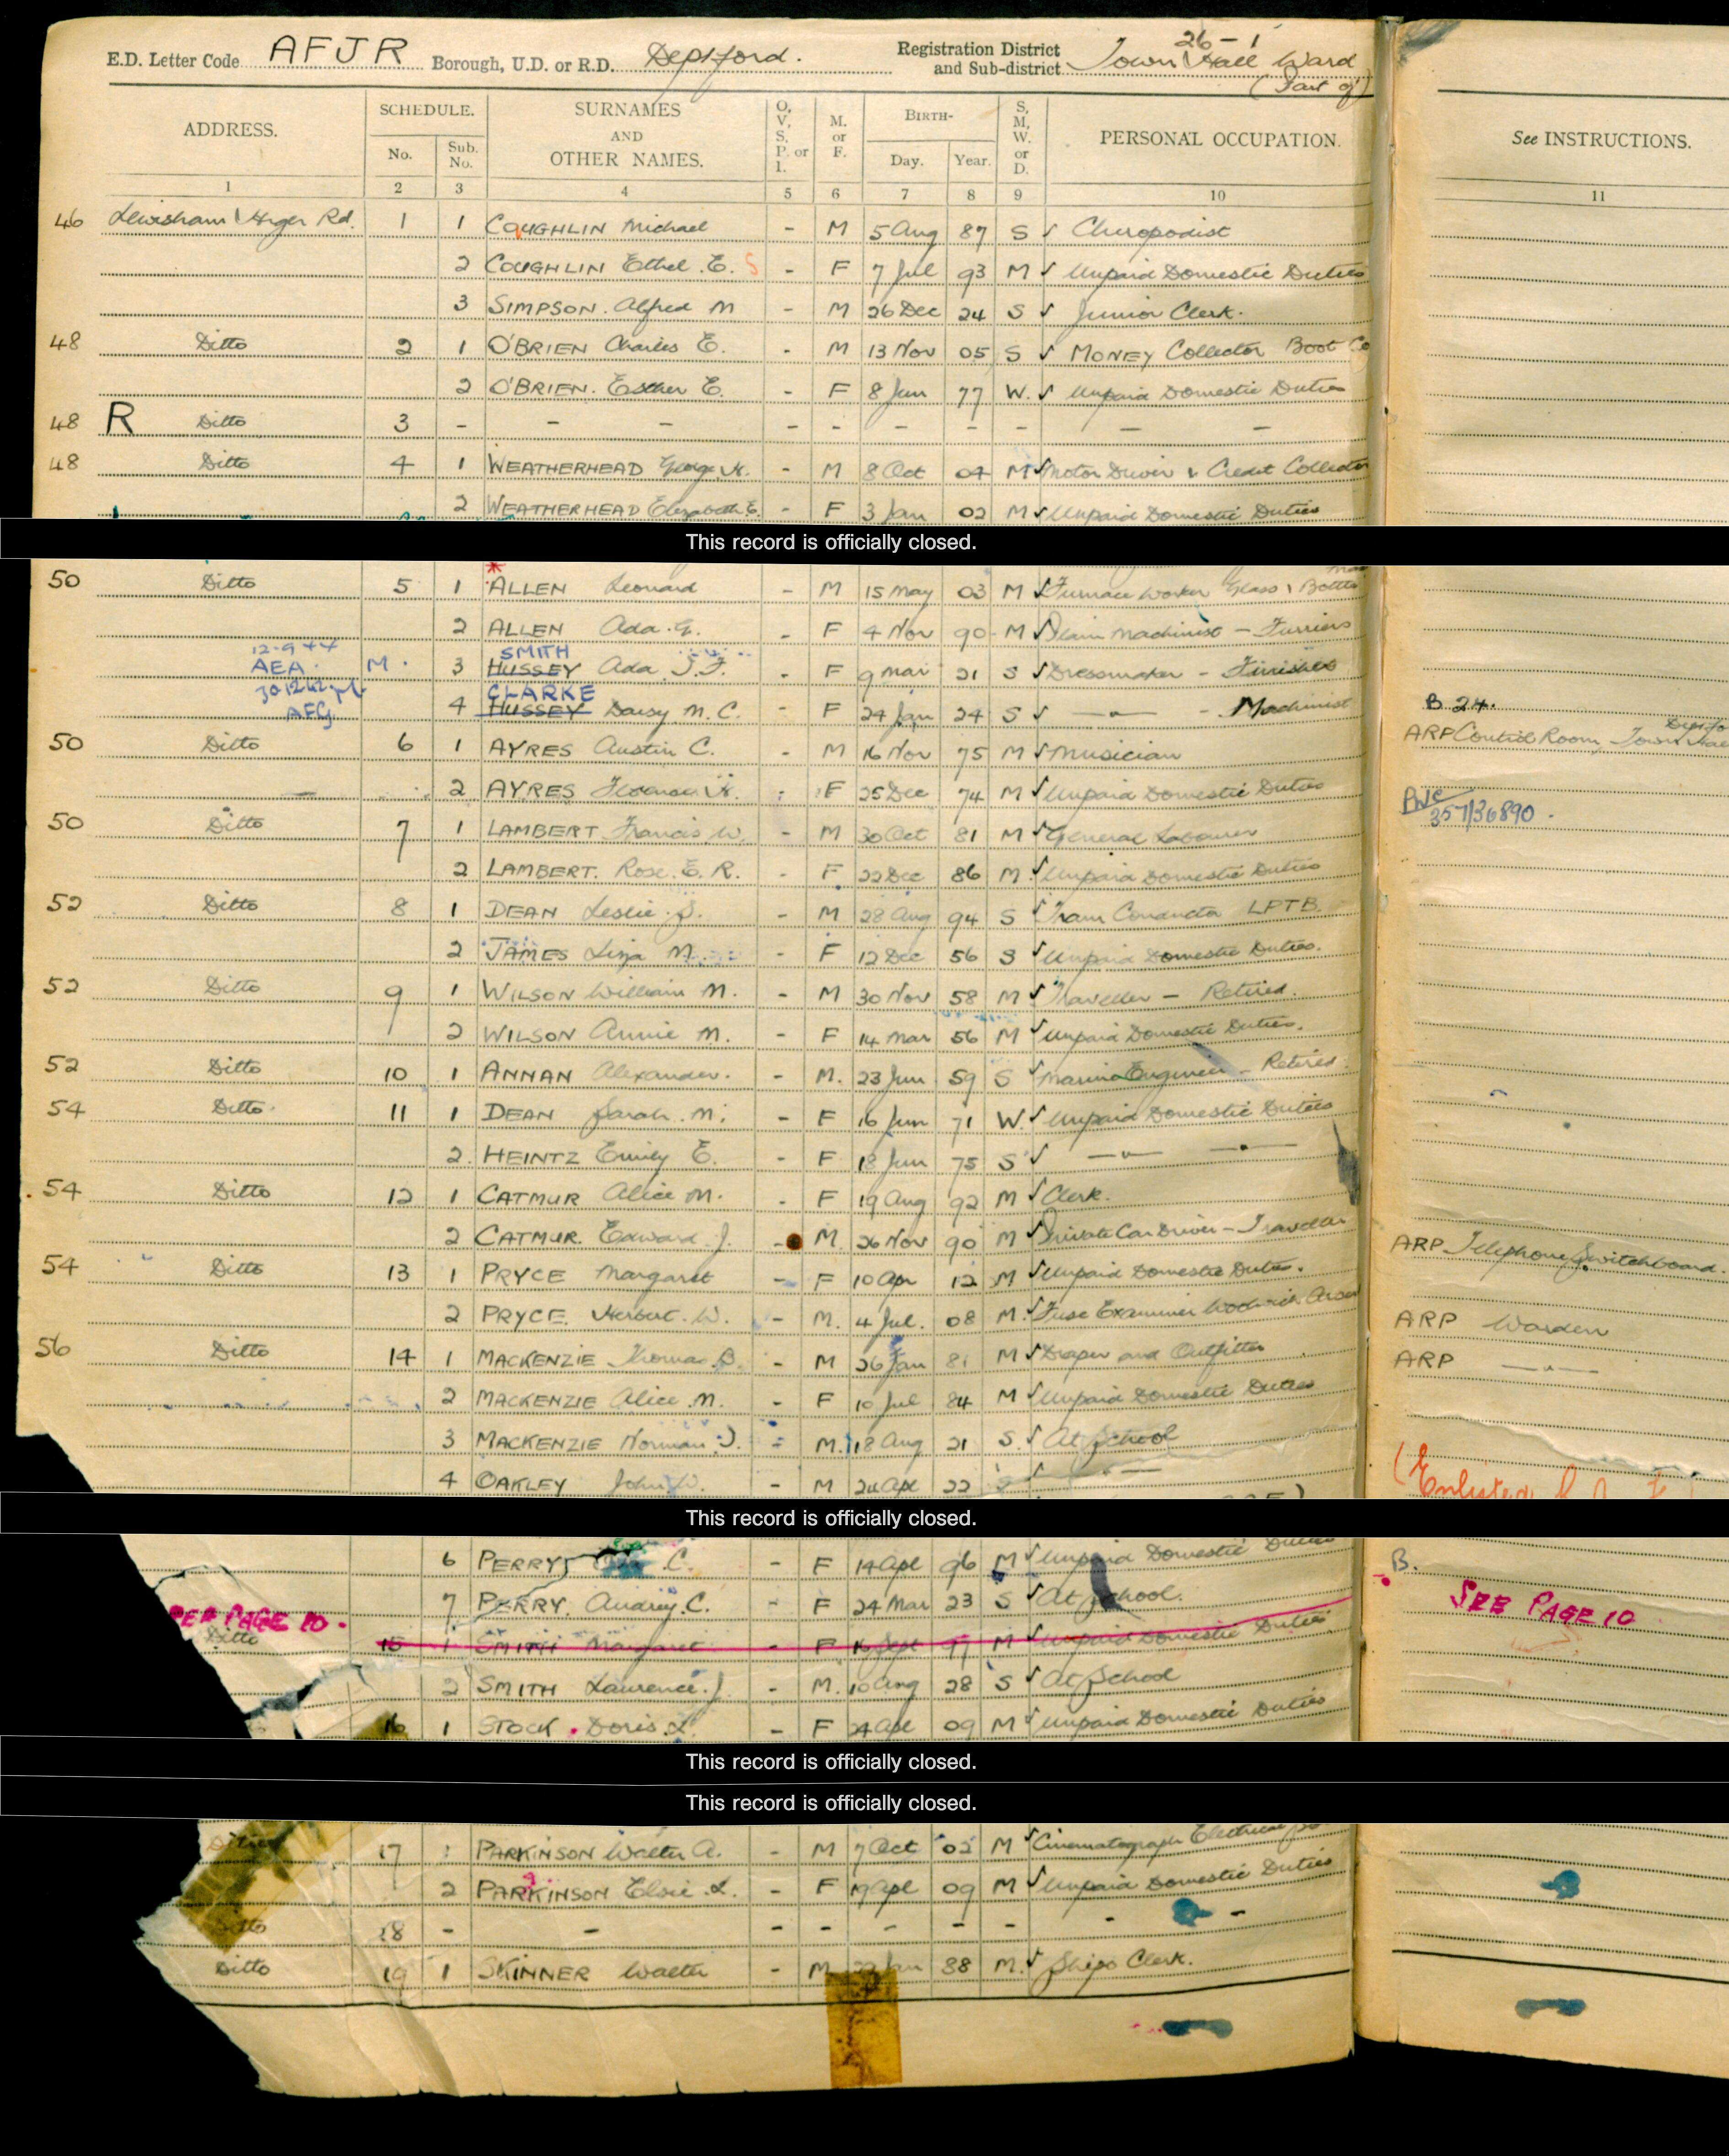 E.D. Letter Code AFJR Borough, U.D. or R.D. Deptford. Registration District and Sub-district 26-1 Town Hall Ward (Part of)
ADDRESS. SCHEDULE. No. Sub. No. SURNAMES AND OTHER NAMES. O, V, S, P. or I. M. or F. BIRTH- Day. Year. S, M, W. or D. PERSONAL OCCUPATION. See INSTRUCTIONS.
1 2 3 4 5 6 7 8 9 10 11
46 Lewisham High Rd. 1 1 COUGHLIN Michael - M 5 Aug 87 S ✓ Chiropodist
2 COUGHLIN Ethel. E. S - F 7 Jul 93 M ✓ Unpaid Domestic Duties
3 SIMPSON. Alfred M - M 26 Dec 24 S ✓ Junior Clerk.
48 Ditto 2 1 O'BRIEN Charles E. - M 13 Nov 05 S ✓ MONEY Collector Boot Co
2 O'BRIEN. Esther E. - F 8 Jun 77 W. ✓ Unpaid Domestic Duties
48 R Ditto 3 - - - - - - - - - -
48 Ditto 4 1 WEATHERHEAD George H. - M 8 Oct 04 M ✓ Motor Driver & Credit Collector
2 WEATHERHEAD Elizabeth E. - F 3 Jan 02 M ✓ Unpaid Domestic Duties
This record is officially closed.
50 Ditto 5 1 ALLEN Leonard - M 15 May 03 M ✓ Furnace Worker Glass & Bottle
2 ALLEN Ada. G. - F 4 Nov 90 M ✓ Plain Machinist - Furriers
12.9.44 AEA. M. 3 SMITH HUSSEY Ada J.F. - F 9 Mar 21 S ✓ Dressmaker - Finisher
30.12.42 AFG 4 CLARKE HUSSEY Daisy M. C. - F 24 Jan 24 S ✓ —"— - Machinist B 24.
50 Ditto 6 1 AYRES Austin C. - M 16 Nov 75 M ✓ Musician ARP Control Room, Town
2 AYRES Florence H. - F 25 Dec 74 M ✓ Unpaid Domestic Duties
50 Ditto 7 1 LAMBERT Francis W. - M 30 Oct 81 M ✓ General Labourer 357/36890.
2 LAMBERT. Rose. E. R. - F 22 Dec 86 M. ✓ Unpaid Domestic Duties
52 Ditto 8 1 DEAN Leslie. J. - M 28 Aug 94 S ✓ Tram Conductor LPTB.
2 JAMES Liza M. - F 12 Dec 56 S ✓ Unpaid Domestic Duties.
52 Ditto 9 1 WILSON William M. - M 30 Nov 58 M ✓ Traveller - Retired.
2 WILSON Annie M. - F 14 Mar 56 M ✓ Unpaid Domestic Duties.
52 Ditto 10 1 ANNAN Alexander. - M. 23 Jun 59 S ✓ Marine Engineer - Retired.
54 Ditto. 11 1 DEAN Sarah. M. - F 16 Jun 71 W. ✓ Unpaid Domestic Duties
2. HEINTZ Emily E. - F 18 Jun 75 S ✓ —"— —"—
54 Ditto 12 1 CATMUR Alice M. - F 19 Aug 92 M ✓ Clerk.
2 CATMUR. Edward. J. - M. 26 Nov 90 M ✓ Private Car Driver - Traveller ARP Telephone Switchboard.
54 Ditto 13 1 PRYCE Margaret - F 10 Apr 12 M ✓ Unpaid Domestic Duties.
2 PRYCE. Herbert. W. - M. 4 Jul. 08 M. ✓ Fuse Examiner Woolwich Arsen ARP Warden
56 Ditto 14 1 MACKENZIE Thomas B. - M 26 Jan 81 M ✓ Draper and Outfitter ARP —"—
2 MACKENZIE Alice M. - F 10 Jul 84 M ✓ Unpaid Domestic Duties
3 MACKENZIE Norman J. - M. 18 Aug 21 S. ✓ At School
4 OAKLEY John W. - M 24 Apl 22 S ✓ —"— (Enlisted
This record is officially closed.
6 PERRY C. - F 14 Apl 96 M ✓ Unpaid Domestic Duties B.
7 PERRY. Audrey. C. - F 24 Mar 23 S ✓ At School. SEE PAGE 10
PER PAGE 10.
Ditto 15 1 SMITH Margaret - F 16 Sept 97 M ✓ Unpaid Domestic Duties
2 SMITH Laurence. J. - M. 10 Aug 28 S ✓ At School
16 1 STOCK. Doris L. - F 24 Apl 09 M ✓ Unpaid Domestic Duties
This record is officially closed.
This record is officially closed.
Ditto 17 1 PARKINSON Walter A. - M 7 Oct 02 M ✓ Cinematograph Electrical
2 PARKINSON Elsie. L. - F 19 Apl 09 M ✓ Unpaid Domestic Duties
Ditto 18 - - - - - - - - -
Ditto 19 1 SKINNER Walter - M 22 Jan 88 M. ✓ Ships Clerk.